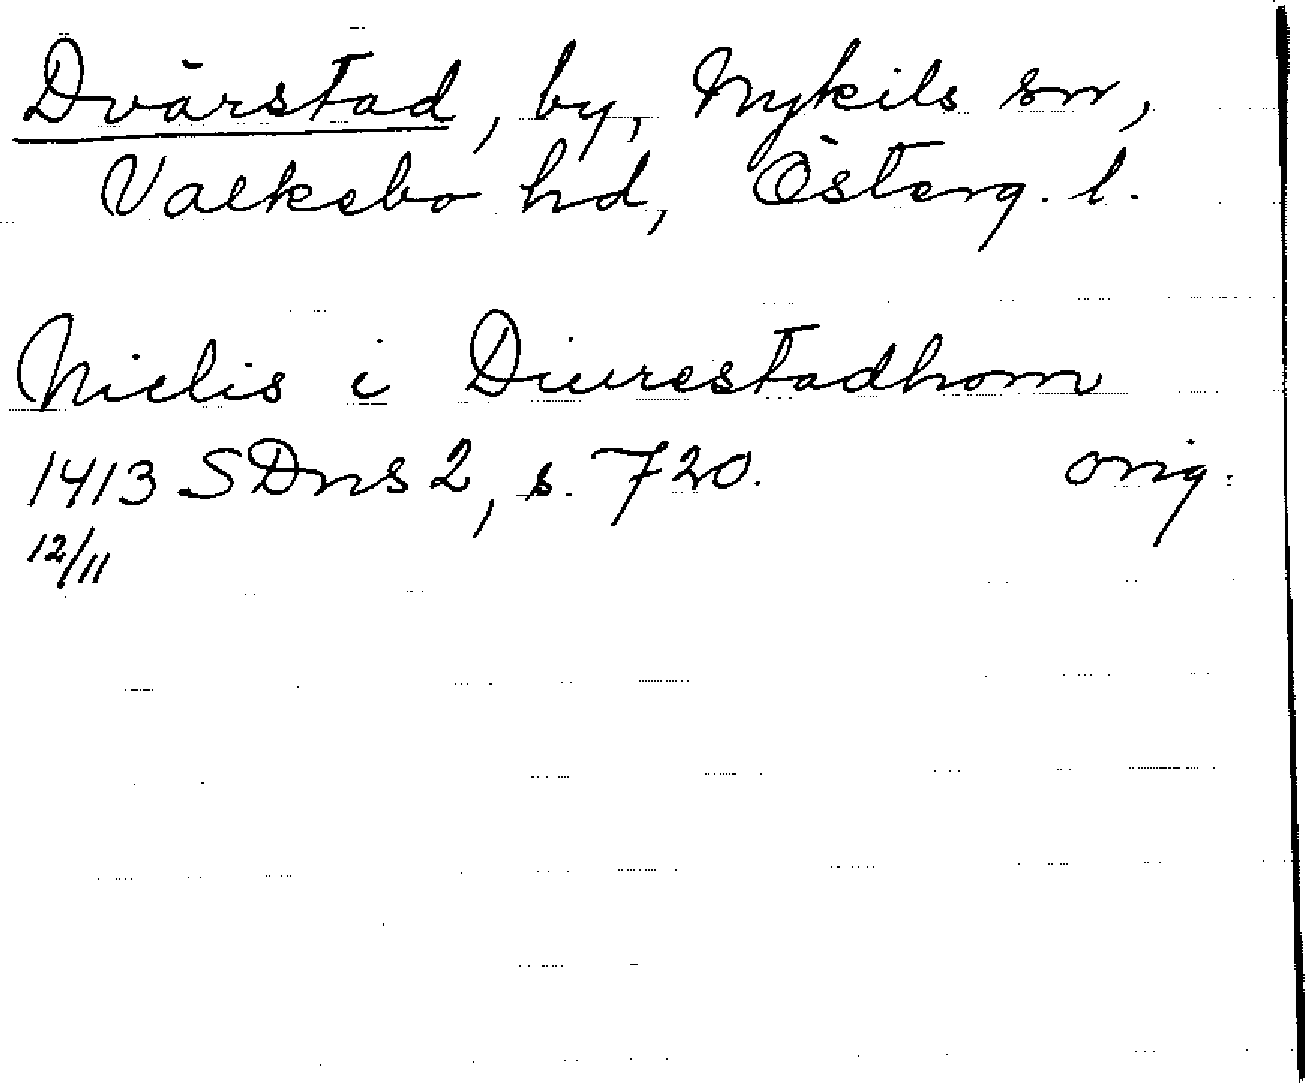 Dvärstad, by, Nykils sn,
Valkebo hd, Österg. l.
Nielis i Diurestadhom
1413 SDns 2, s. 720. orig.
12/11